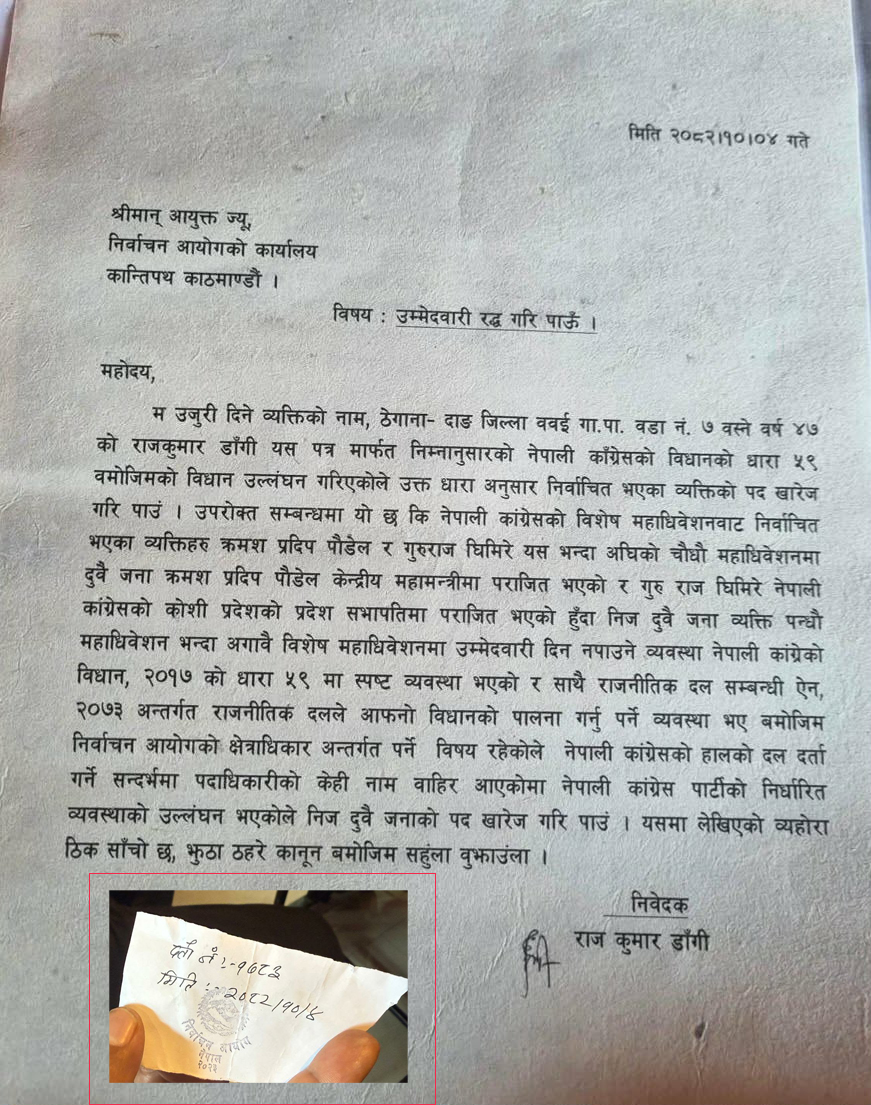 मिति २०८२।१०।०४ गते
श्रीमान् आयुक्त ज्यू,
निर्वाचन आयोगको कार्यालय
कान्तिपथ काठमाण्डौं ।
विषय : उम्मेदवारी रद्ध गरि पाऊँ ।
महोदय,
म उजुरी दिने व्यक्तिको नाम, ठेगाना- दाङ जिल्ला ववई गा.पा. वडा नं. ७ वस्ने वर्ष ४७
को राजकुमार डाँगी यस पत्र मार्फत निम्नानुसारको नेपाली काँग्रेसको विधानको धारा ५९
वमोजिमको विधान उल्लंघन गरिएकोले उक्त धारा अनुसार निर्वाचित भएका व्यक्तिको पद खारेज
गरि पाउं । उपरोक्त सम्बन्धमा यो छ कि नेपाली कांग्रेसको विशेष महाधिवेशनवाट निर्वाचित
भएका व्यक्तिहरु क्रमश प्रदिप पौडेल र गुरुराज घिमिरे यस भन्दा अघिको चौधौ महाधिवेशनमा
दुवै जना क्रमश प्रदिप पौडेल केन्द्रीय महामन्त्रीमा पराजित भएको र गुरु राज घिमिरे नेपाली
कांग्रेसको कोशी प्रदेशको प्रदेश सभापतिमा पराजित भएको हुँदा निज दुवै जना व्यक्ति पन्ध्रौ
महाधिवेशन भन्दा अगावै विशेष महाधिवेशनमा उम्मेदवारी दिन नपाउने व्यवस्था नेपाली कांग्रेको
विधान, २०१७ को धारा ५९ मा स्पष्ट व्यवस्था भएको र साथै राजनीतिक दल सम्बन्धी ऐन,
२०७३ अन्तर्गत राजनीतिक दलले आफनो विधानको पालना गर्नु पर्ने व्यवस्था भए बमोजिम
निर्वाचन आयोगको क्षेत्राधिकार अन्तर्गत पर्ने विषय रहेकोले नेपाली कांग्रेसको हालको दल दर्ता
गर्ने सन्दर्भमा पदाधिकारीको केही नाम वाहिर आएकोमा नेपाली कांग्रेस पार्टीको निर्धारित
व्यवस्थाको उल्लंघन भएकोले निज दुवै जनाको पद खारेज गरि पाउं । यसमा लेखिएको व्यहोरा
ठिक साँचो छ, झुठा ठहरे कानून बमोजिम सहुंला वुझाउंला ।
निवेदक
राज कुमार डाँगी
दर्ता नं :-१७८३
मिति :- २०८२/१०/४
निर्वाचन आयोग
नेपाल
२०२३